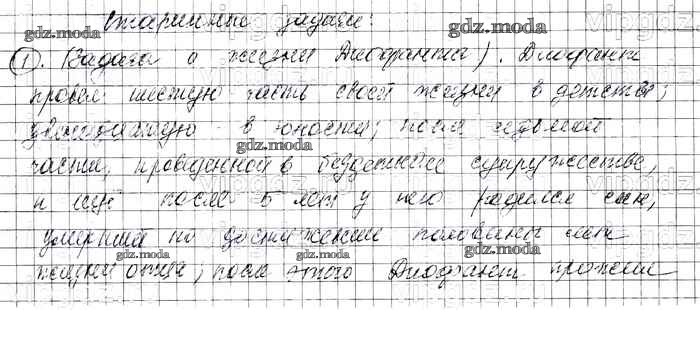 Старинные задачи:
① . (Задача о жизни Диофанта). Диофант
провел шестую часть своей жизни в детстве,
двенадцатую - в юности; после седьмой
части, проведенной в бездетном супружестве,
и еще после 5 лет у него родился сын,
умерший по достижении половины лет
жизни отца; после этого Диофант прожил
gdz.moda
gdz.moda
gdz.moda
gdz.moda
gdz.moda
gdz.moda
gdz.moda
gdz.moda
gdz.moda
gdz.moda